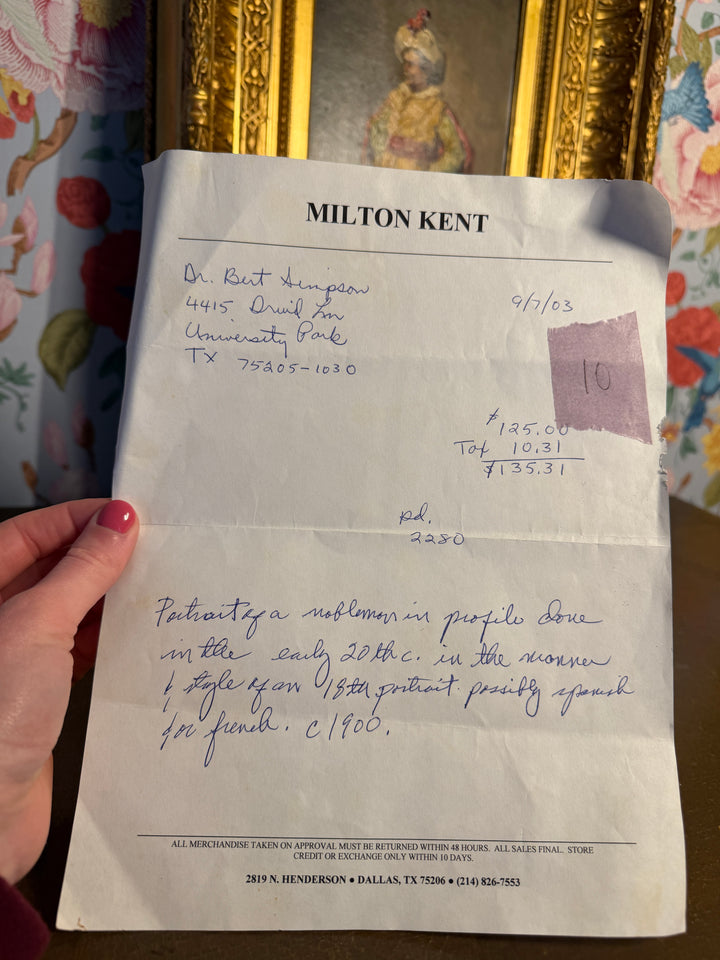 MILTON KENT
Dr. Bert Simpson
9/7/03
4415 Druid Ln
University Park
TX 75205-1030
10
$125.00
Tax 10.31
$135.31
pd.
2280
Portrait of a nobleman in profile done
in the early 20th c. in the manner
& style of an 18th portrait. possibly spanish
&/or french. c1900.
ALL MERCHANDISE TAKEN ON APPROVAL MUST BE RETURNED WITHIN 48 HOURS. ALL SALES FINAL. STORE
CREDIT OR EXCHANGE ONLY WITHIN 10 DAYS.
2819 N. HENDERSON • DALLAS, TX 75206 • (214) 826-7553